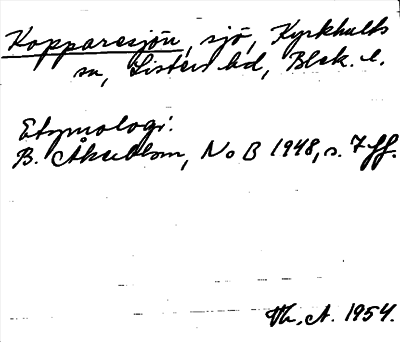 Kopparesjön, sjö, Kyrkhults
sn, Listers hd, Blek. l.
Etymologi:
B. Åkerblom, NoB 1948, s. 7 ff.
Th. A. 1954.